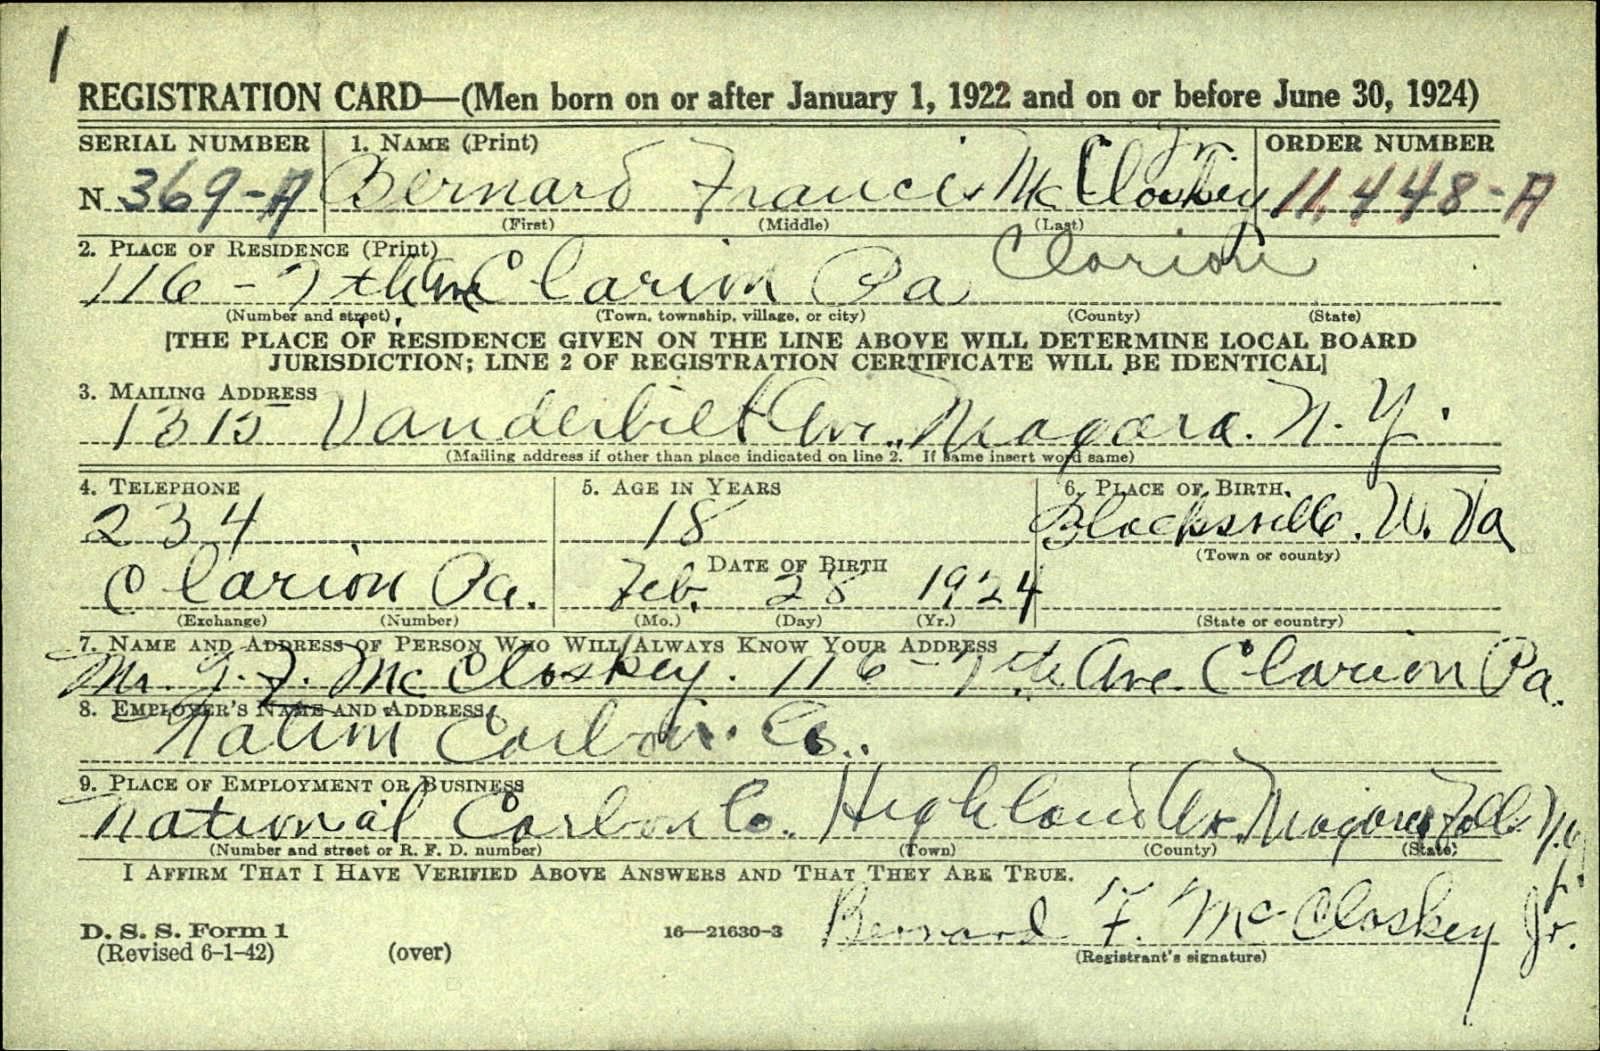 1
REGISTRATION CARD—(Men born on or after January 1, 1922 and on or before June 30, 1924)
SERIAL NUMBER 1. NAME (Print) ORDER NUMBER
Jr.
N 369-A Bernard Francis McCloskey 11,448-A
(First) (Middle) (Last)
2. PLACE OF RESIDENCE (Print)
116 - 7th Ave Clarion Pa Clarion
(Number and street) (Town, township, village, or city) (County) (State)
[THE PLACE OF RESIDENCE GIVEN ON THE LINE ABOVE WILL DETERMINE LOCAL BOARD
JURISDICTION; LINE 2 OF REGISTRATION CERTIFICATE WILL BE IDENTICAL]
3. MAILING ADDRESS
1315 Vanderbilt Ave., Niagara. N.Y.
(Mailing address if other than place indicated on line 2. If same insert word same)
4. TELEPHONE 5. AGE IN YEARS 6. PLACE OF BIRTH
234 18 Blacksville. W. Va
(Town or county)
DATE OF BIRTH
Clarion Pa. Feb. 28 1924
(Exchange) (Number) (Mo.) (Day) (Yr.) (State or country)
7. NAME AND ADDRESS OF PERSON WHO WILL ALWAYS KNOW YOUR ADDRESS
Mr. F. McCloskey. 116 - 7th Ave. Clarion Pa.
8. EMPLOYER'S NAME AND ADDRESS
Carbon. Co.
9. PLACE OF EMPLOYMENT OR BUSINESS
National Carbon Co. Highland Av. Niagara Falls N.Y.
(Number and street or R. F. D. number) (Town) (County) (State)
I AFFIRM THAT I HAVE VERIFIED ABOVE ANSWERS AND THAT THEY ARE TRUE.
D. S. S. Form 1 16—21630-3 Bernard F. McCloskey Jr.
(Revised 6-1-42) (over) (Registrant's signature)